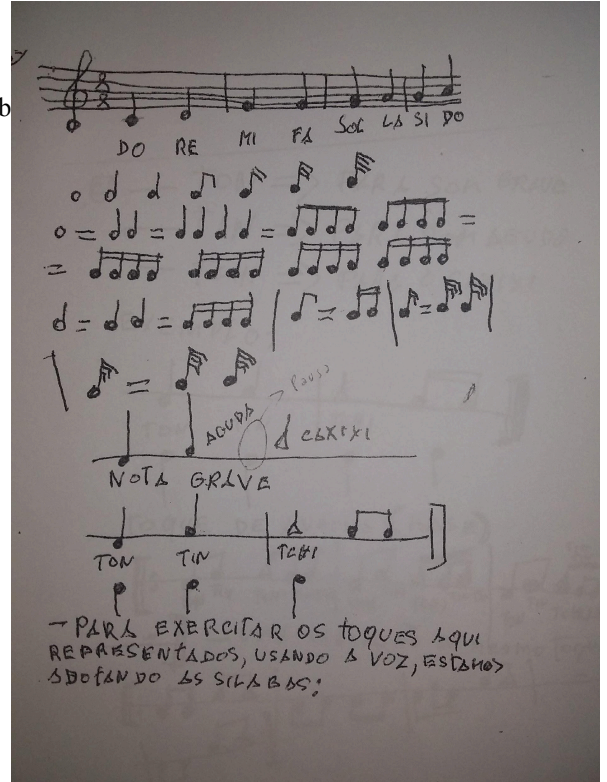 b
DO RE MI FA SOL LA SI DO
AGUDA
Pausa
CAXIXI
NOTA GRAVE
TON TIN TCHI
- PARA EXERCITAR OS TOQUES AQUI
REPRESENTADOS, USANDO A VOZ, ESTAMOS
ADOTANDO AS SILABAS: